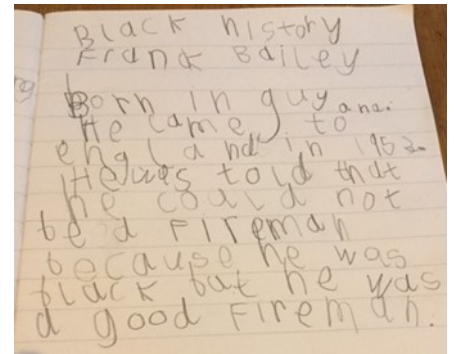 Black history
Frank Bailey
Born in guyana.
He came to
england in 1953.
He was told that
he could not
be a Fireman
because he was
black but he was
a good Fireman.